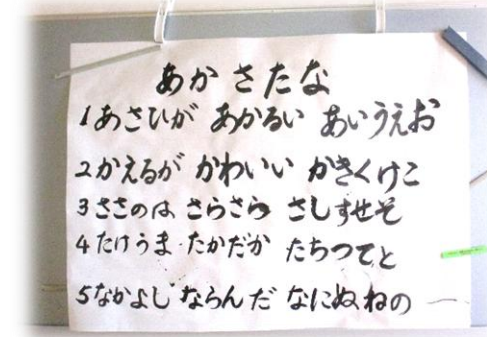 あかさたな
1あさひが あかるい あいうえお
2かえるが かわいい かきくけこ
3ささのは さらさら さしすせそ
4たけうま たかだか たちつてと
5なかよし ならんだ なにぬねの